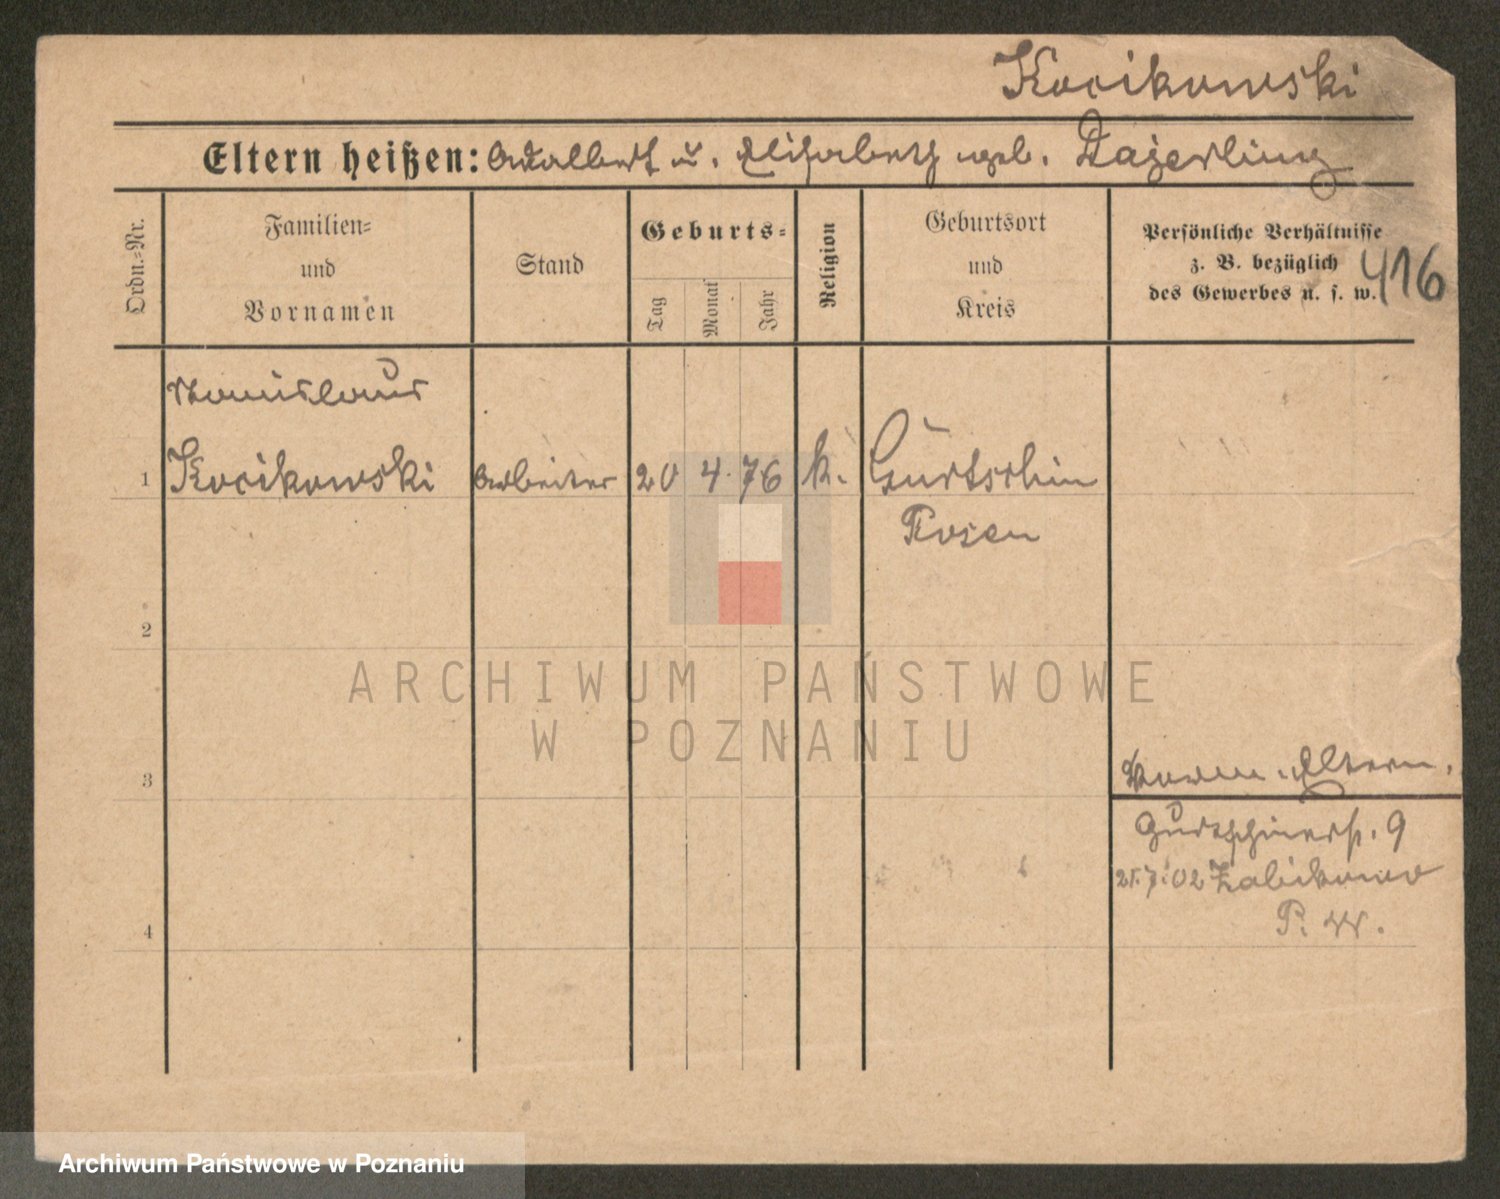 Kocikowski
Eltern heißen: Adalbert u. Elisabeth geb.
Ordn.-Nr.
Familien-
und
Vornamen
Stand
Geburts-
Tag
Monat
Jahr
Religion
Geburtsort
und
Kreis
Persönliche Verhältnisse
z. B. bezüglich
des Gewerbes u. s. w.
416
Stanislaus
1 Kocikowski Arbeiter 20 4. 76 k. Gurtschin
Posen
2
ARCHIWUM PAŃSTWOWE
W POZNANIU
3
Eltern.
Gurtschinerstr. 9
21.7.02 Zabikowo
P. W.
4
Archiwum Państwowe w Poznaniu